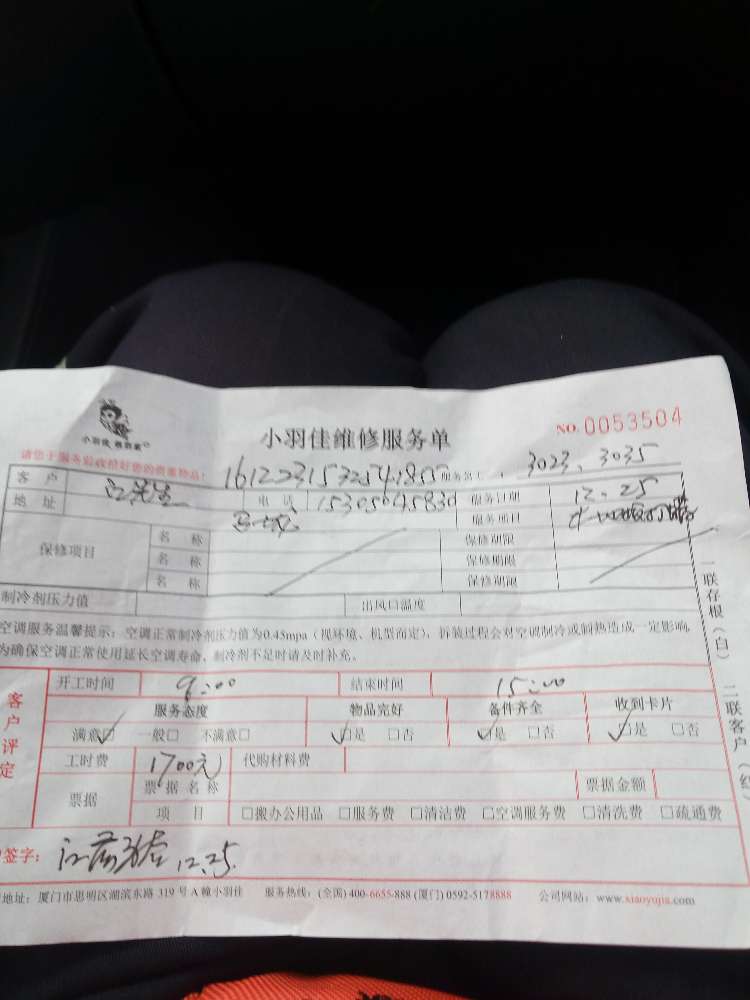 小羽佳维修服务单 NO. 0053504
小羽佳
请您于服务验收前好您的贵重物品!
客 户 江先生 3023、3035
地 址 电话 15305045830 服务日期 12.25
服务项目
保修项目 名 称 保修期限
名 称 保修期限
名 称 保修期限
制冷剂压力值 出风口温度
空调服务温馨提示:空调正常制冷剂压力值为0.45mpa(视环境、机型而定),拆装过程会对空调制冷或制热造成一定影响
为确保空调正常使用延长空调寿命,制冷剂不足时请及时补充。
一联存根(白) 二联客户(红)
客户评定
开工时间 9:00 结束时间 15:00
服务态度 物品完好 备件齐全 收到卡片
满意☑ 一般□ 不满意□ ☑是 □否 ☑是 □否 ☑是 □否
工时费 1700元 代购材料费
票据 票据名称 票据金额
项 目 □搬办公用品 □服务费 □清洁费 □空调服务费 □清洗费 □疏通费
签字: 12.25
地址:厦门市思明区湖滨东路 319 号 A 幢小羽佳 服务热线:(全国) 400-6655-888 (厦门) 0592-5178888 公司网站:www.xiaoyujia.com